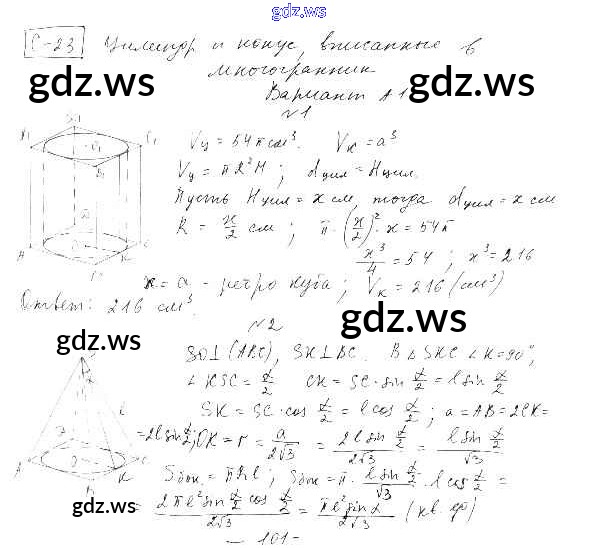 gdz.ws
С-23 Цилиндр и конус, вписанные в
многогранник
gdz.ws gdz.ws
Вариант А1
№1
Vц = 54π см³. Vк = a³
Vц = πR²H ; dцил = Hцил.
Пусть Hцил = x см, тогда dцил = x см
R = x/2 см ; π·(x/2)²·x = 54π
x³/4 = 54 ; x³ = 216
x = a - ребро куба ; Vк = 216 (см³)
Ответ: 216 см³.
gdz.ws
№2
gdz.ws
SO⊥(ABC), SK⊥BC. В △SKC ∠K=90°,
∠KSC = α/2 CK = SC·sin α/2 = l sin α/2
SK = SC·cos α/2 = l cos α/2 ; a = AB = 2CK =
= 2l sin α/2 ; OK = r = a/2√3 = 2l sin α/2 / 2√3 = l sin α/2 / √3
Sбок = πRl ; Sбок = π· l sin α/2 / √3 · l cos α/2 =
= 2πl² sin α/2 cos α/2 / 2√3 = πl² sin α / 2√3 (кв. ед)
gdz.ws gdz.ws
- 101 -